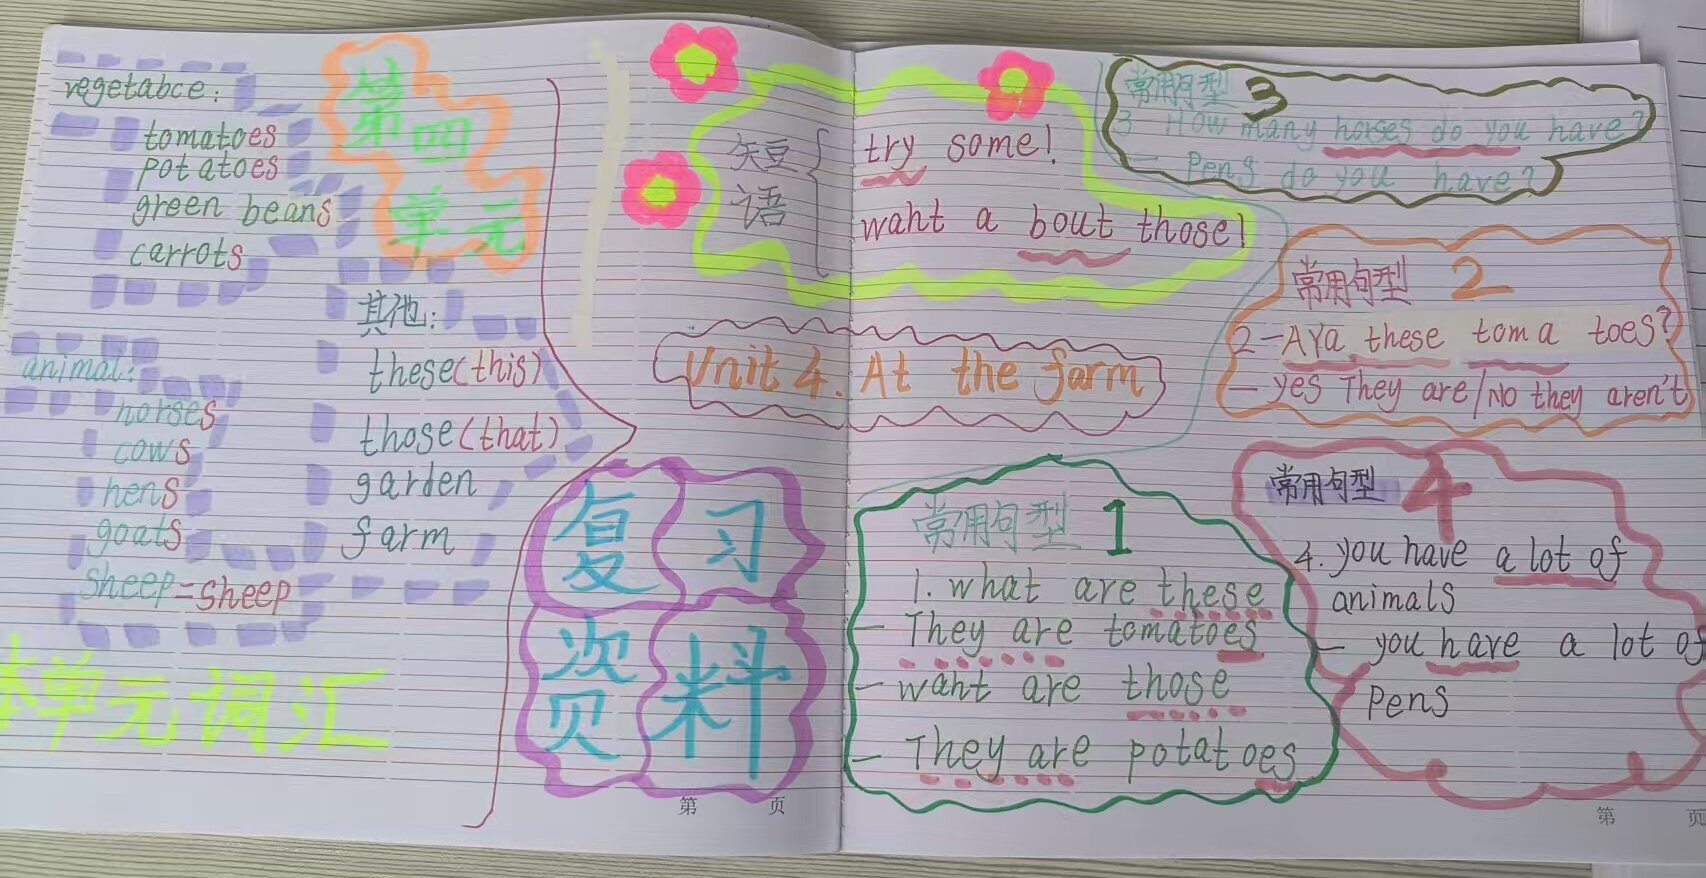 vegetabce:
tomatoes
potatoes
green beans
carrots
第四
单元
其他:
these(this)
those(that)
garden
farm
animal:
horses
cows
hens
goats
sheep=sheep
本单元词汇
短语
try some!
waht a bout those!
Unit 4. At the farm
复习
资料
常用句型 1
1. what are these
— They are tomatoes
— waht are those
— They are potatoes
常用句型 2
2-AYa these toma toes?
— yes They are/No they aren't
常用句型 3
3 How many horses do you have?
— Pens do you have?
常用句型 4
4. you have a lot of
animals
— you have a lot of
pens
第 页
第 页